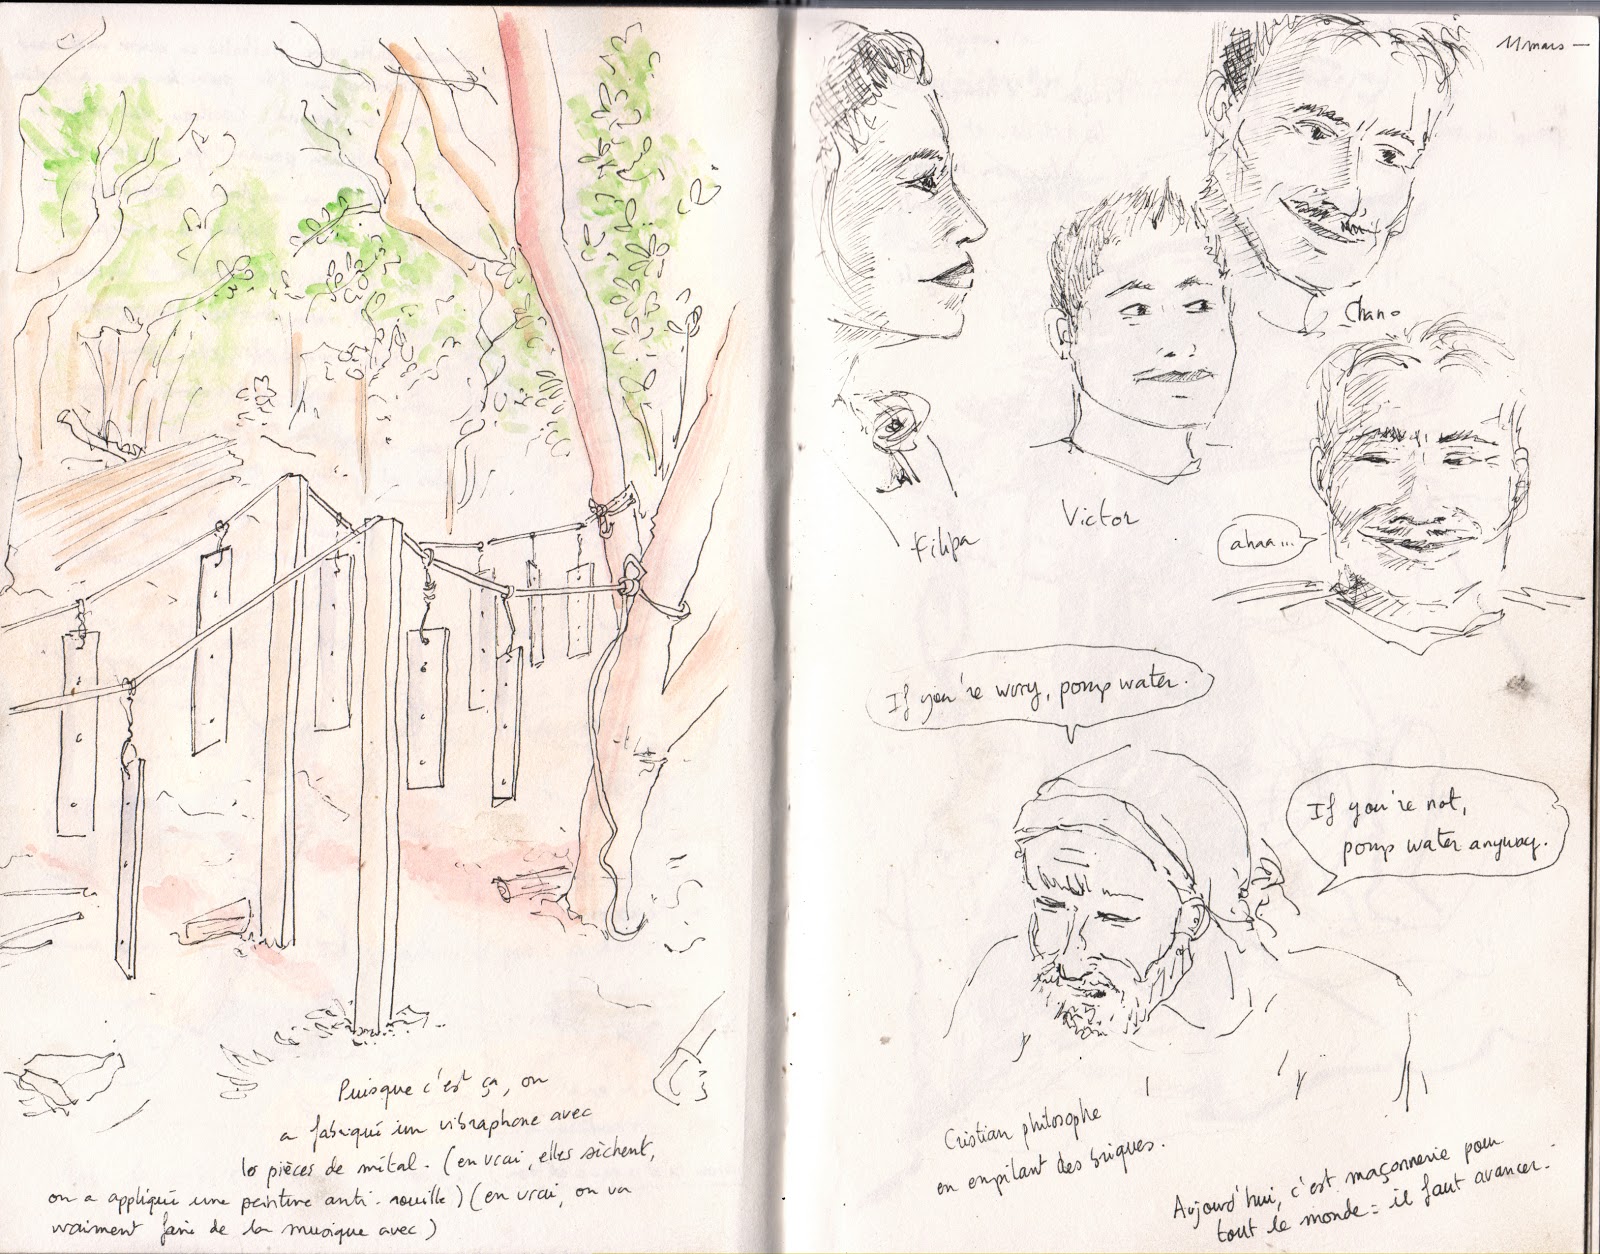 Puisque c'est ça, on
a fabriqué un vibraphone avec
10 pièces de métal. (en vrai, elles sèchent,
on a appliqué une peinture anti-rouille) (en vrai, on va
vraiment faire de la musique avec)
11 mars —
Chano
Victor
Filipa
ahaa...
If you're wory, pomp water.
If you're not,
pomp water anyway.
Cristian philosophe
en empilant des briques.
Aujourd'hui, c'est maçonnerie pour
tout le monde = il faut avancer.